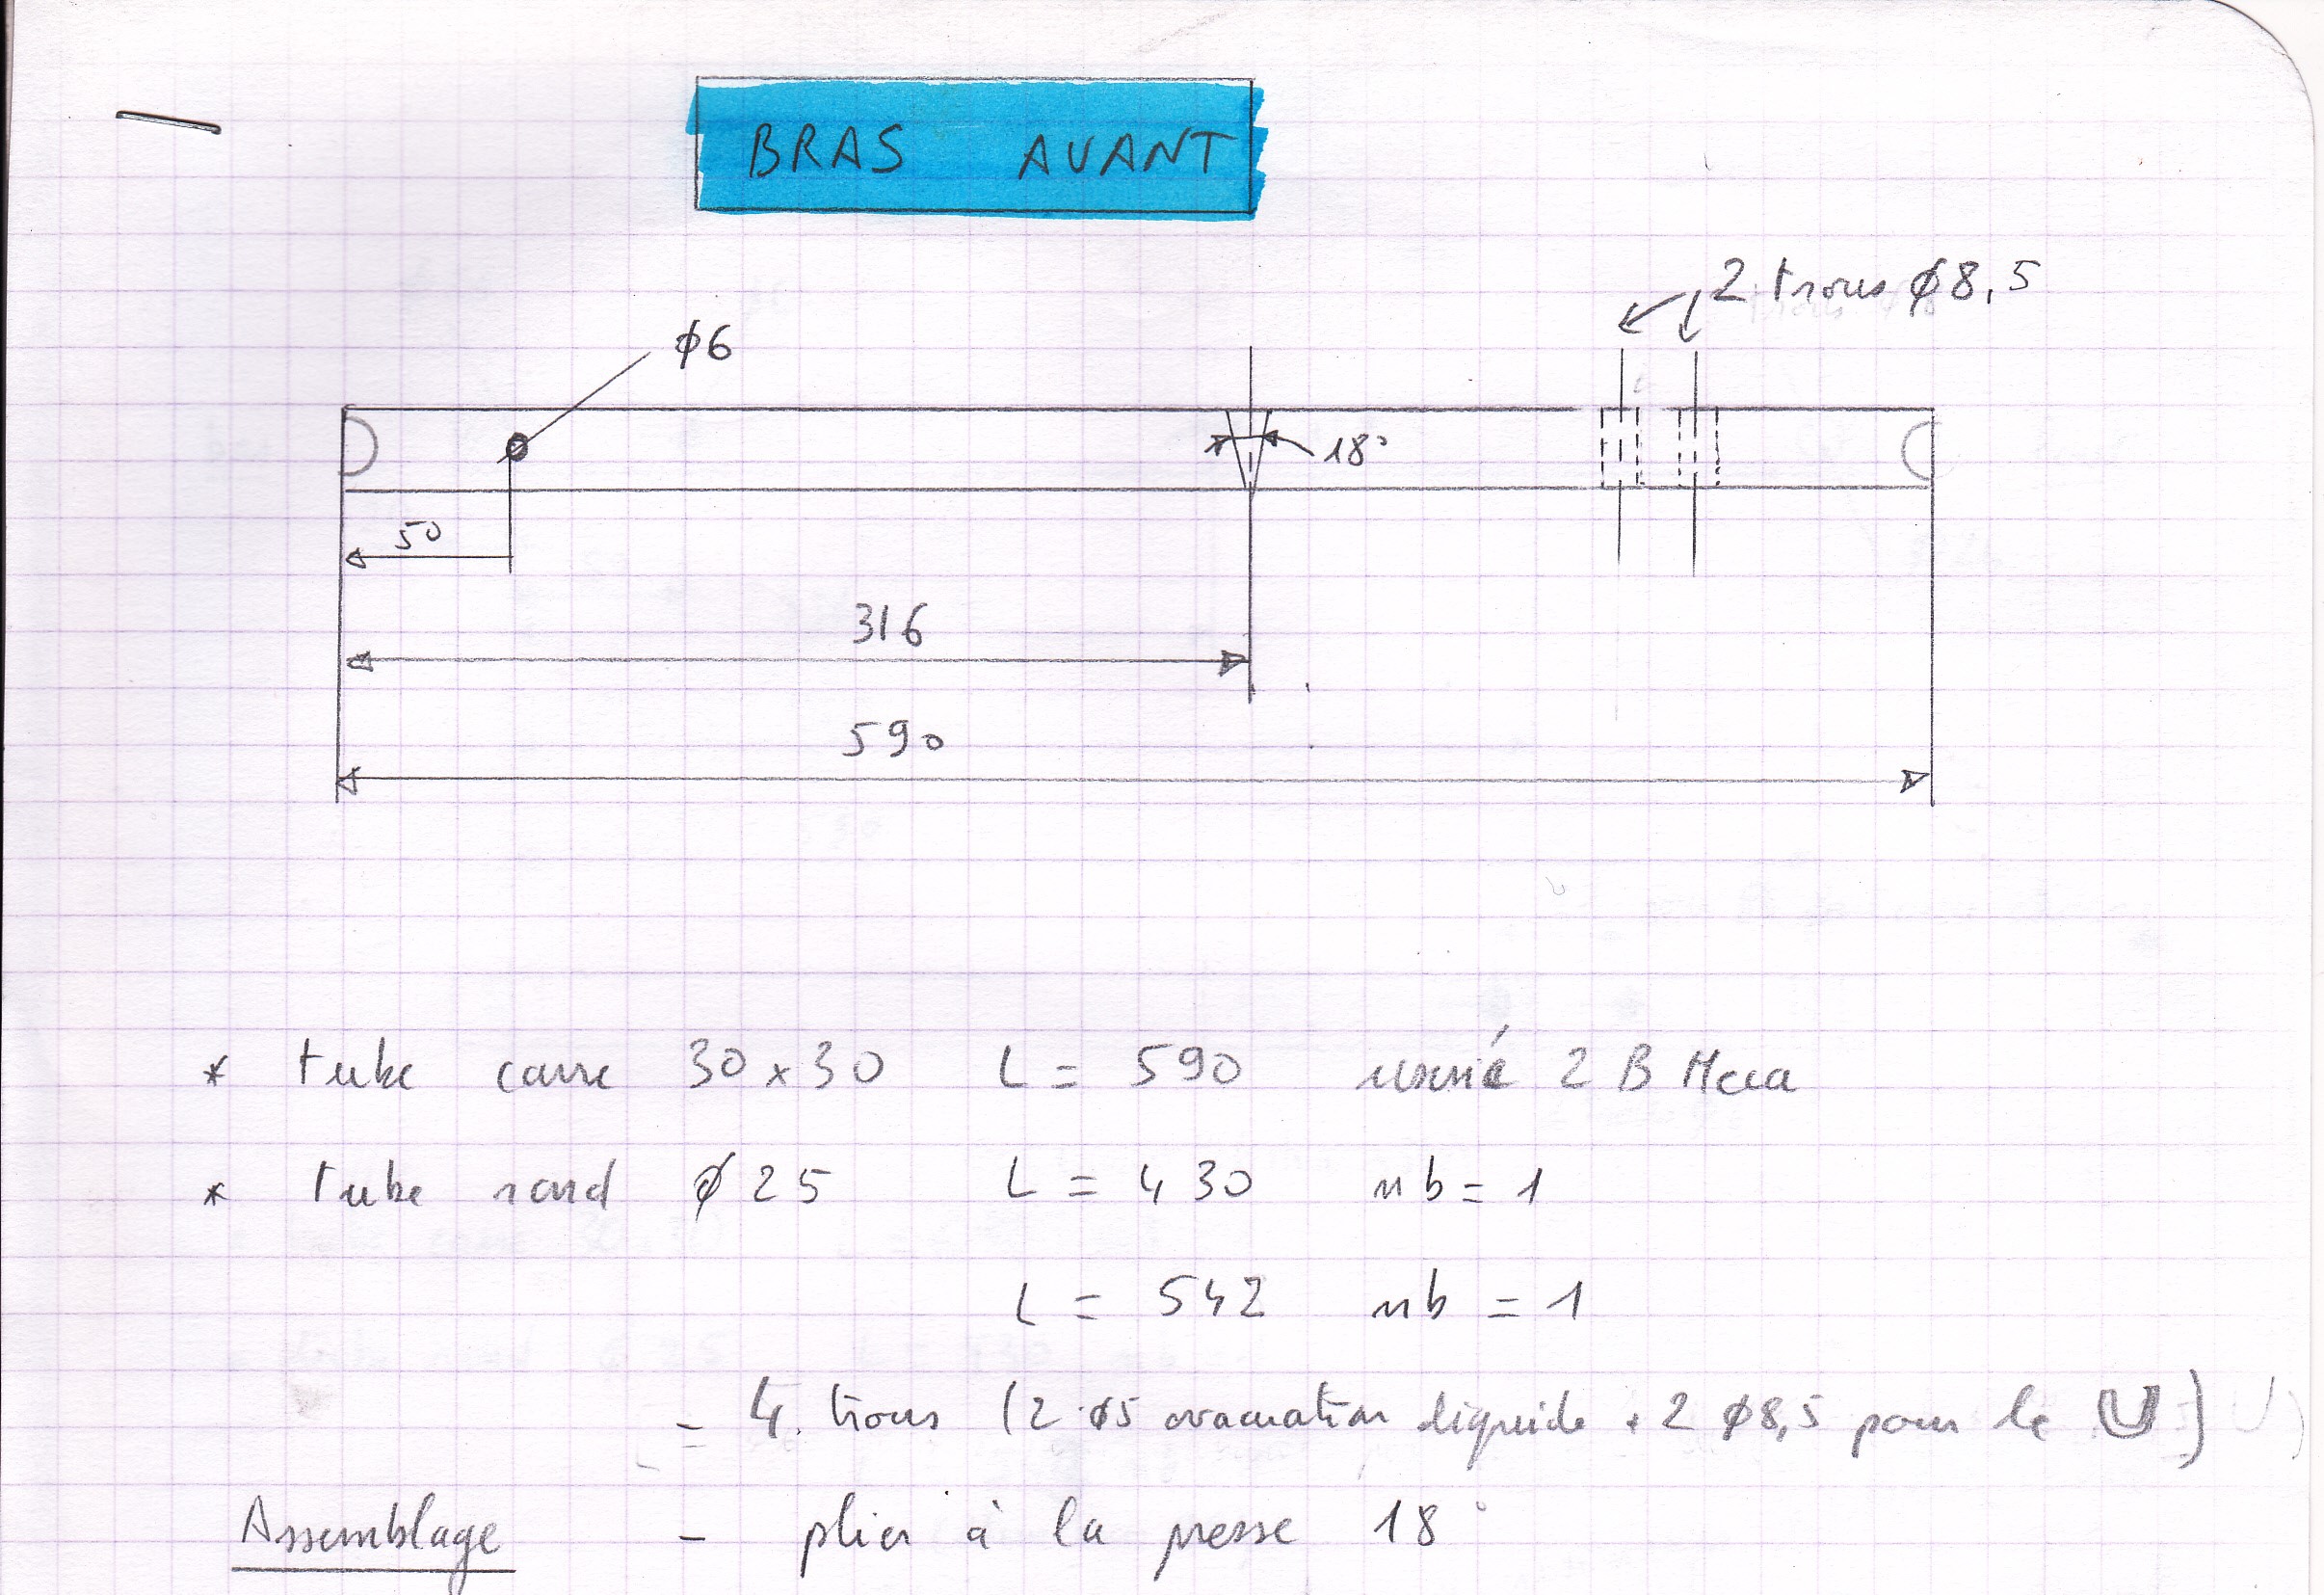 BRAS AVANT
2 trous ϕ8,5
ϕ6
18°
50
316
590
* tube carre 30 x 30 L = 590 usiné 2 B Meca
* tube rond ϕ 25 L = 430 nb = 1
L = 542 nb = 1
- 4. trous (2 ϕ5 evacuation liquide + 2 ϕ8,5 pour le U)
Assemblage - plier à la presse 18°